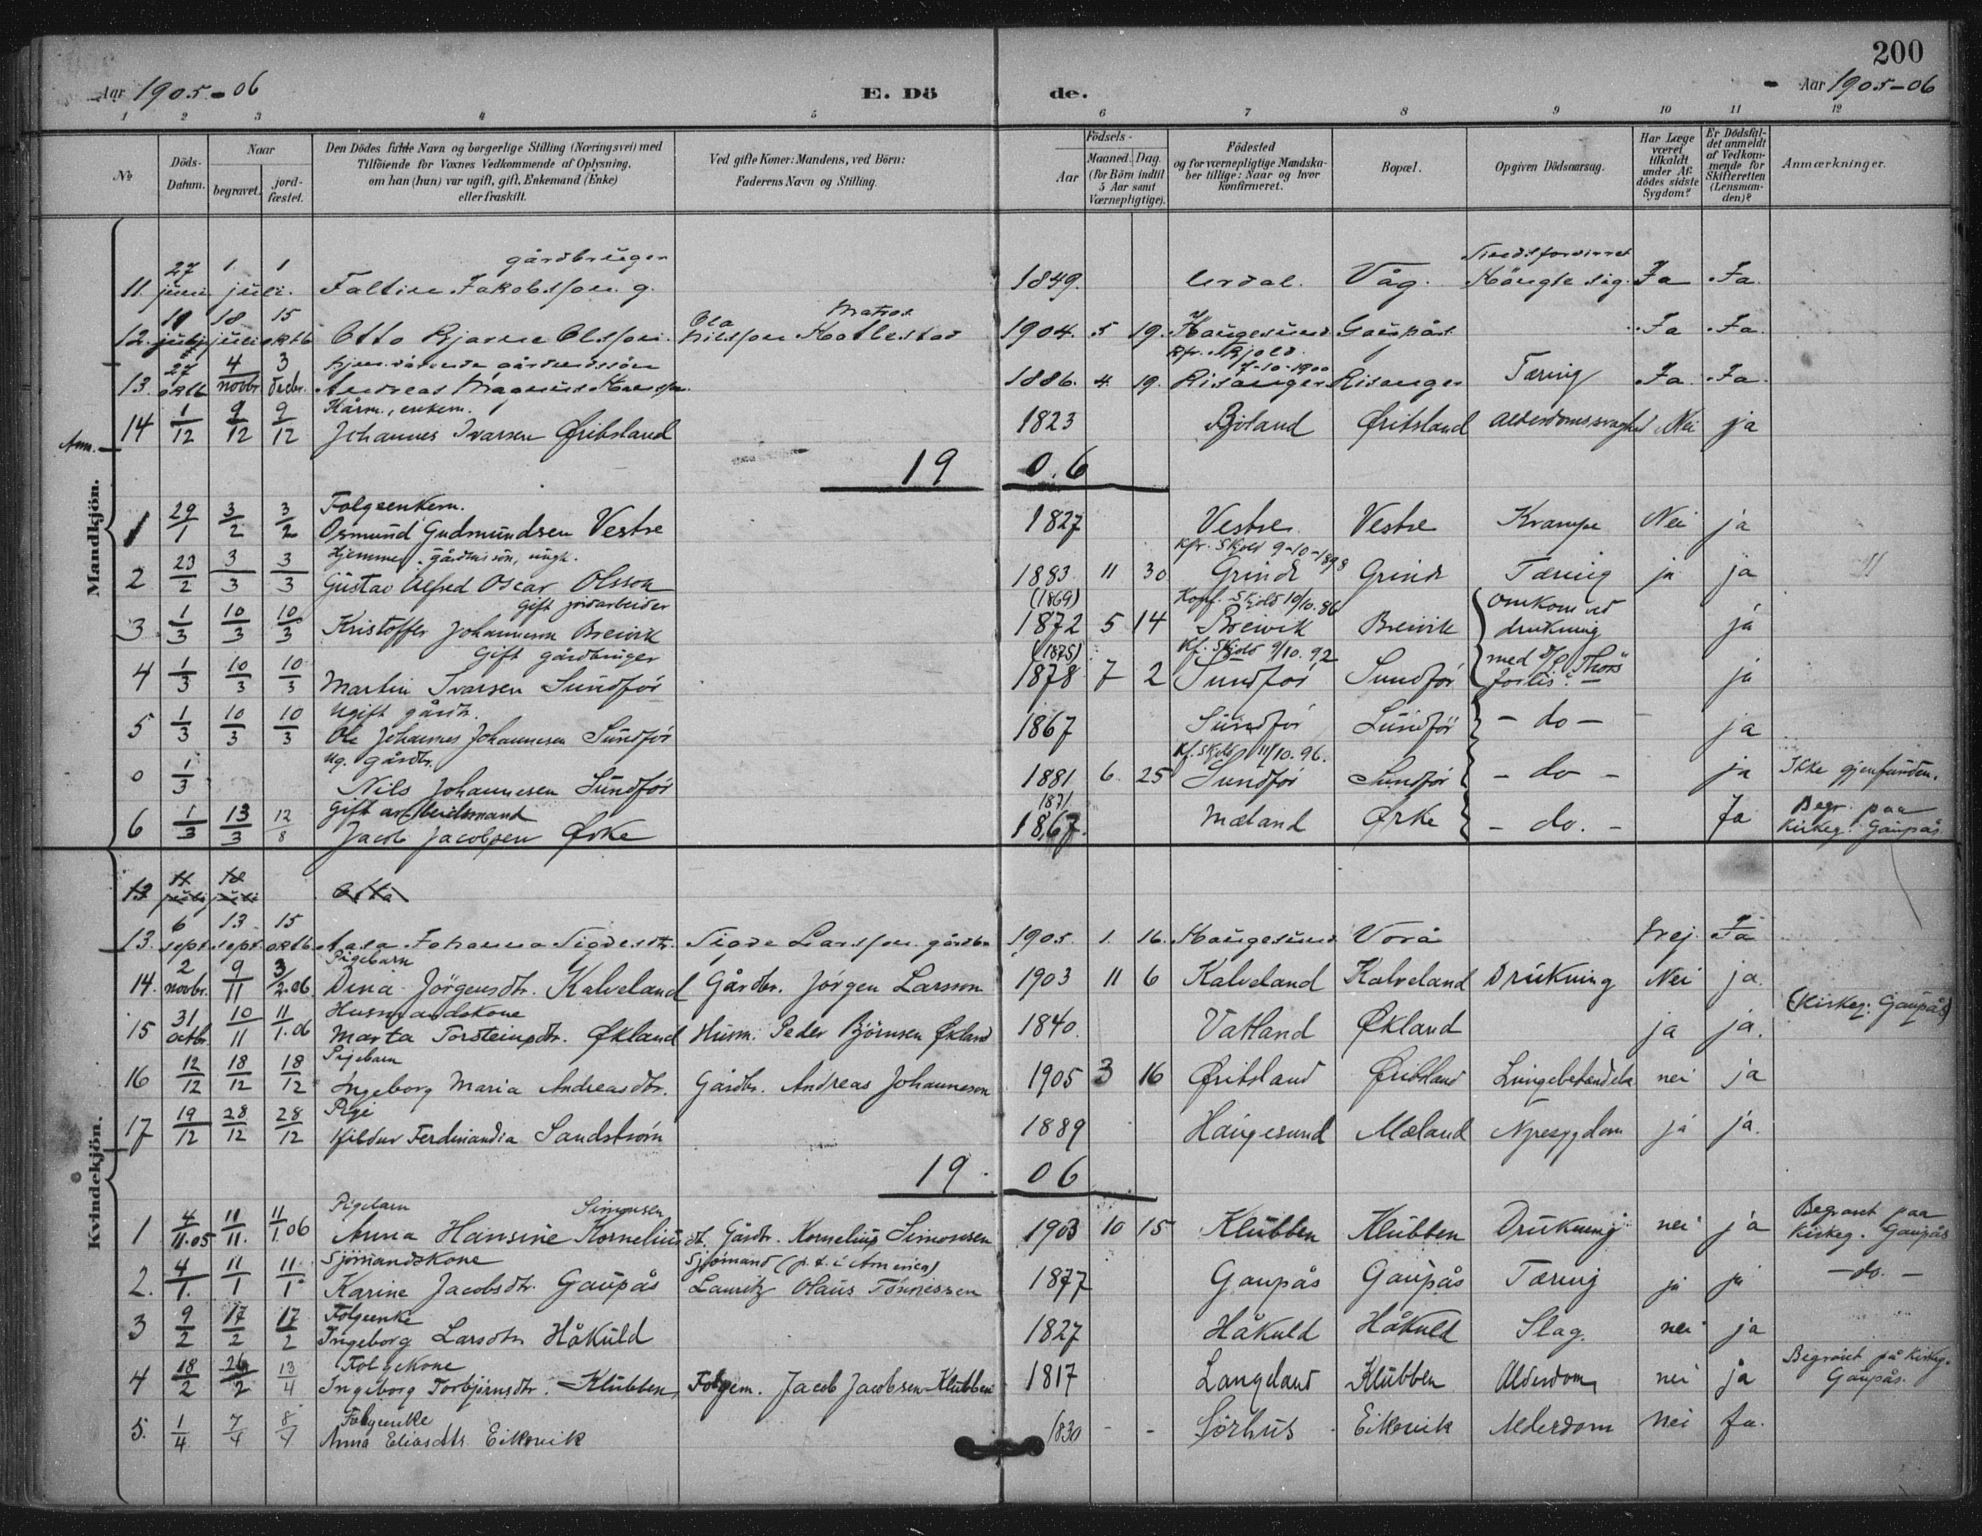 200
Aar 1905-06
E. Dö de.
Aar 1905-06
1 2 3 4 5 6 7 8 9 10 11 12
No
Döds-Datum.
Naar begravet. jordfæstet.
Den Dödes fulde Navn og borgerlige Stilling (Næringsvei) med Tilföiende for Voxnes Vedkommende af Oplysning, om han (hun) var ugift, gift, Enkemand (Enke) eller fraskilt.
Ved gifte Koner: Mandens, ved Börn: Faderens Navn og Stilling.
Födsels- Aar Maaned. Dag. (for Börn indtil 5 Aar samt Værnepligtige).
Födested og for værnepligtige Mandskaber tillige: Naar og hvor konfirmeret.
Bopæl.
Opgiven Dödsaarsag.
Har Læge været tilkaldt under Afdödes sidste Sygdom?
Er Dödsfaldet anmeldt af Vedkommende for Skifteretten (Lensmanden)?
Anmærkninger.
Mandkjön.
gårdbruger
11. 27 juni 1 juli. 1 Faltin Jakobssøn g. 1849. Våg. Hängte sig. Ja Ja.
Matros
12. juli 18 juli 15 oktb Otto Bjarne Olssøn. Ola Nilssøn Kotlestad 1904. 5 19. Haugesund Gaupås Ja Ja.
Kfr. Skjold 7-10-1900
13. 27 oktb 4 novbr 3 decbr. Andreas Magnus 1886. 4. 19. Risanger Risanger Tæring Ja. Ja.
Kårm., enkem.
Anm.
14 1/12 9/12 9/12 Johannes Ivarsen Øritsland 1823 Øritsland Alderdomssvaghed Nei ja
19 06
Folgeenkem.
1 29/1 3/2 3/2 Osmund Gudmundsen Vestre 1827 Vestre Vestre Krampe Nei ja
Hjemmev. gårdmssön, ungk. Kfr. Skjold 9-10-1898
2 23/2 3/3 3/3 Gustav Alfred Oscar Olsson 1883 11 30 Grinde Grinde Tæring ja ja
Gift jordarbeider (1869) Konf. Skjold 10/10.86
3 1/3 10/3 10/3 Kristoffer Johannesen Breivik 1872 5 14 Breivik Breivik Omkom ved drukning ja
Gift gårdbruger (1875) Kf. Skjold 9/10.92
4 1/3 10/3 10/3 Martin Ivarsen Sundför 1878 7 2 Sundför Sundför med D/S "Thor's" forlis. ja
Ugift gårdbr.
5 1/3 10/3 10/3 Ole Johannes Johannesen Sundför 1867 Sundför Sundför - do - ja
Ug. gårdbr. Kf. Skjold 11/10.96.
0 1/3 Nils Johannesen Sundför 1881 6. 25 Sundför Sundför - do - ja Ikke gjenfunden.
Gift arbeidsmand 1871
6 1/3 13/3 12/8 Jacob Jacobsen Ørke 1867. Mæland Ørke - do. - Ja Begr. paa Kirkeg. Gaupås.
Kvindekjön.
13 juli juli Otto
13. 6 sept. 13 sept. 15 oktb. Aasa Johanna Sigdesdtr. Sigde Larssøn gårdbr 1905. 1. 16. Haugesund Vorå Nej. Ja
Pigebarn
14. 2 novbr. 9/11 3/2.06. Dina Jörgensdtr. Kalveland Gårdbr. Jörgen Larsson 1903 11 6 Kalveland Kalveland Drukning Nei ja.
Husmandskone
15 31 octbr. 10/11 11/1.06 Marta Torsteinsdtr. Økland Husm. Peder Björnsen Økland 1840. Vatland Økland ja ja. (Kirkeg: Gaupås)
Pigebarn
16 12/12 18/12 18/12 Ingeborg Maria Andreasdtr. Gårdbr. Andreas Johannesen 1905 3 16 Øritsland Øritsland Lungebetændelse nei ja
Pige
17 19/12 28/12 28/12 Hildur Ferdinandia Sandström 1889 Haugesund Mæland Nyresygdom ja ja.
19 06
Pigebarn Simonsen
1 4/11.05 11/11. 11/1.06 Anna Hansine Korneliusdt. Gårdbr. Kornelius Simonsen 1903 10 15 Klubben Klubben Drukning nei ja Begravet paa Kirkeg. Gaupås
Sjömandskone Sjömand (p.t. i America)
2. 4/1. 11/1 11/1 Karine Jacobsdtr. Gaupås Lauritz Olaus Tönnessen 1877 Gaupås Gaupås Tæring ja ja - do. -
Folgeenke
3 9/2 17/2 17/2 Ingeborg Larsdtr Håkuld 1827 Håkuld Håkuld Slag. nei ja
Folgekone
4 18/2 26/2 13/4 Ingeborg Torbjörnsdtr. Klubben Folgem. Jacob Jacobsen Klubben 1817 Langeland Klubben Alderdom nei ja Begravet på Kirkeg. Gaupås.
Folgeenke
5. 1/4 7/4 8/4 Anna Eliasdtr Eikevik 1830 - - Sörhus Eikevik Alderdom Nei Ja.